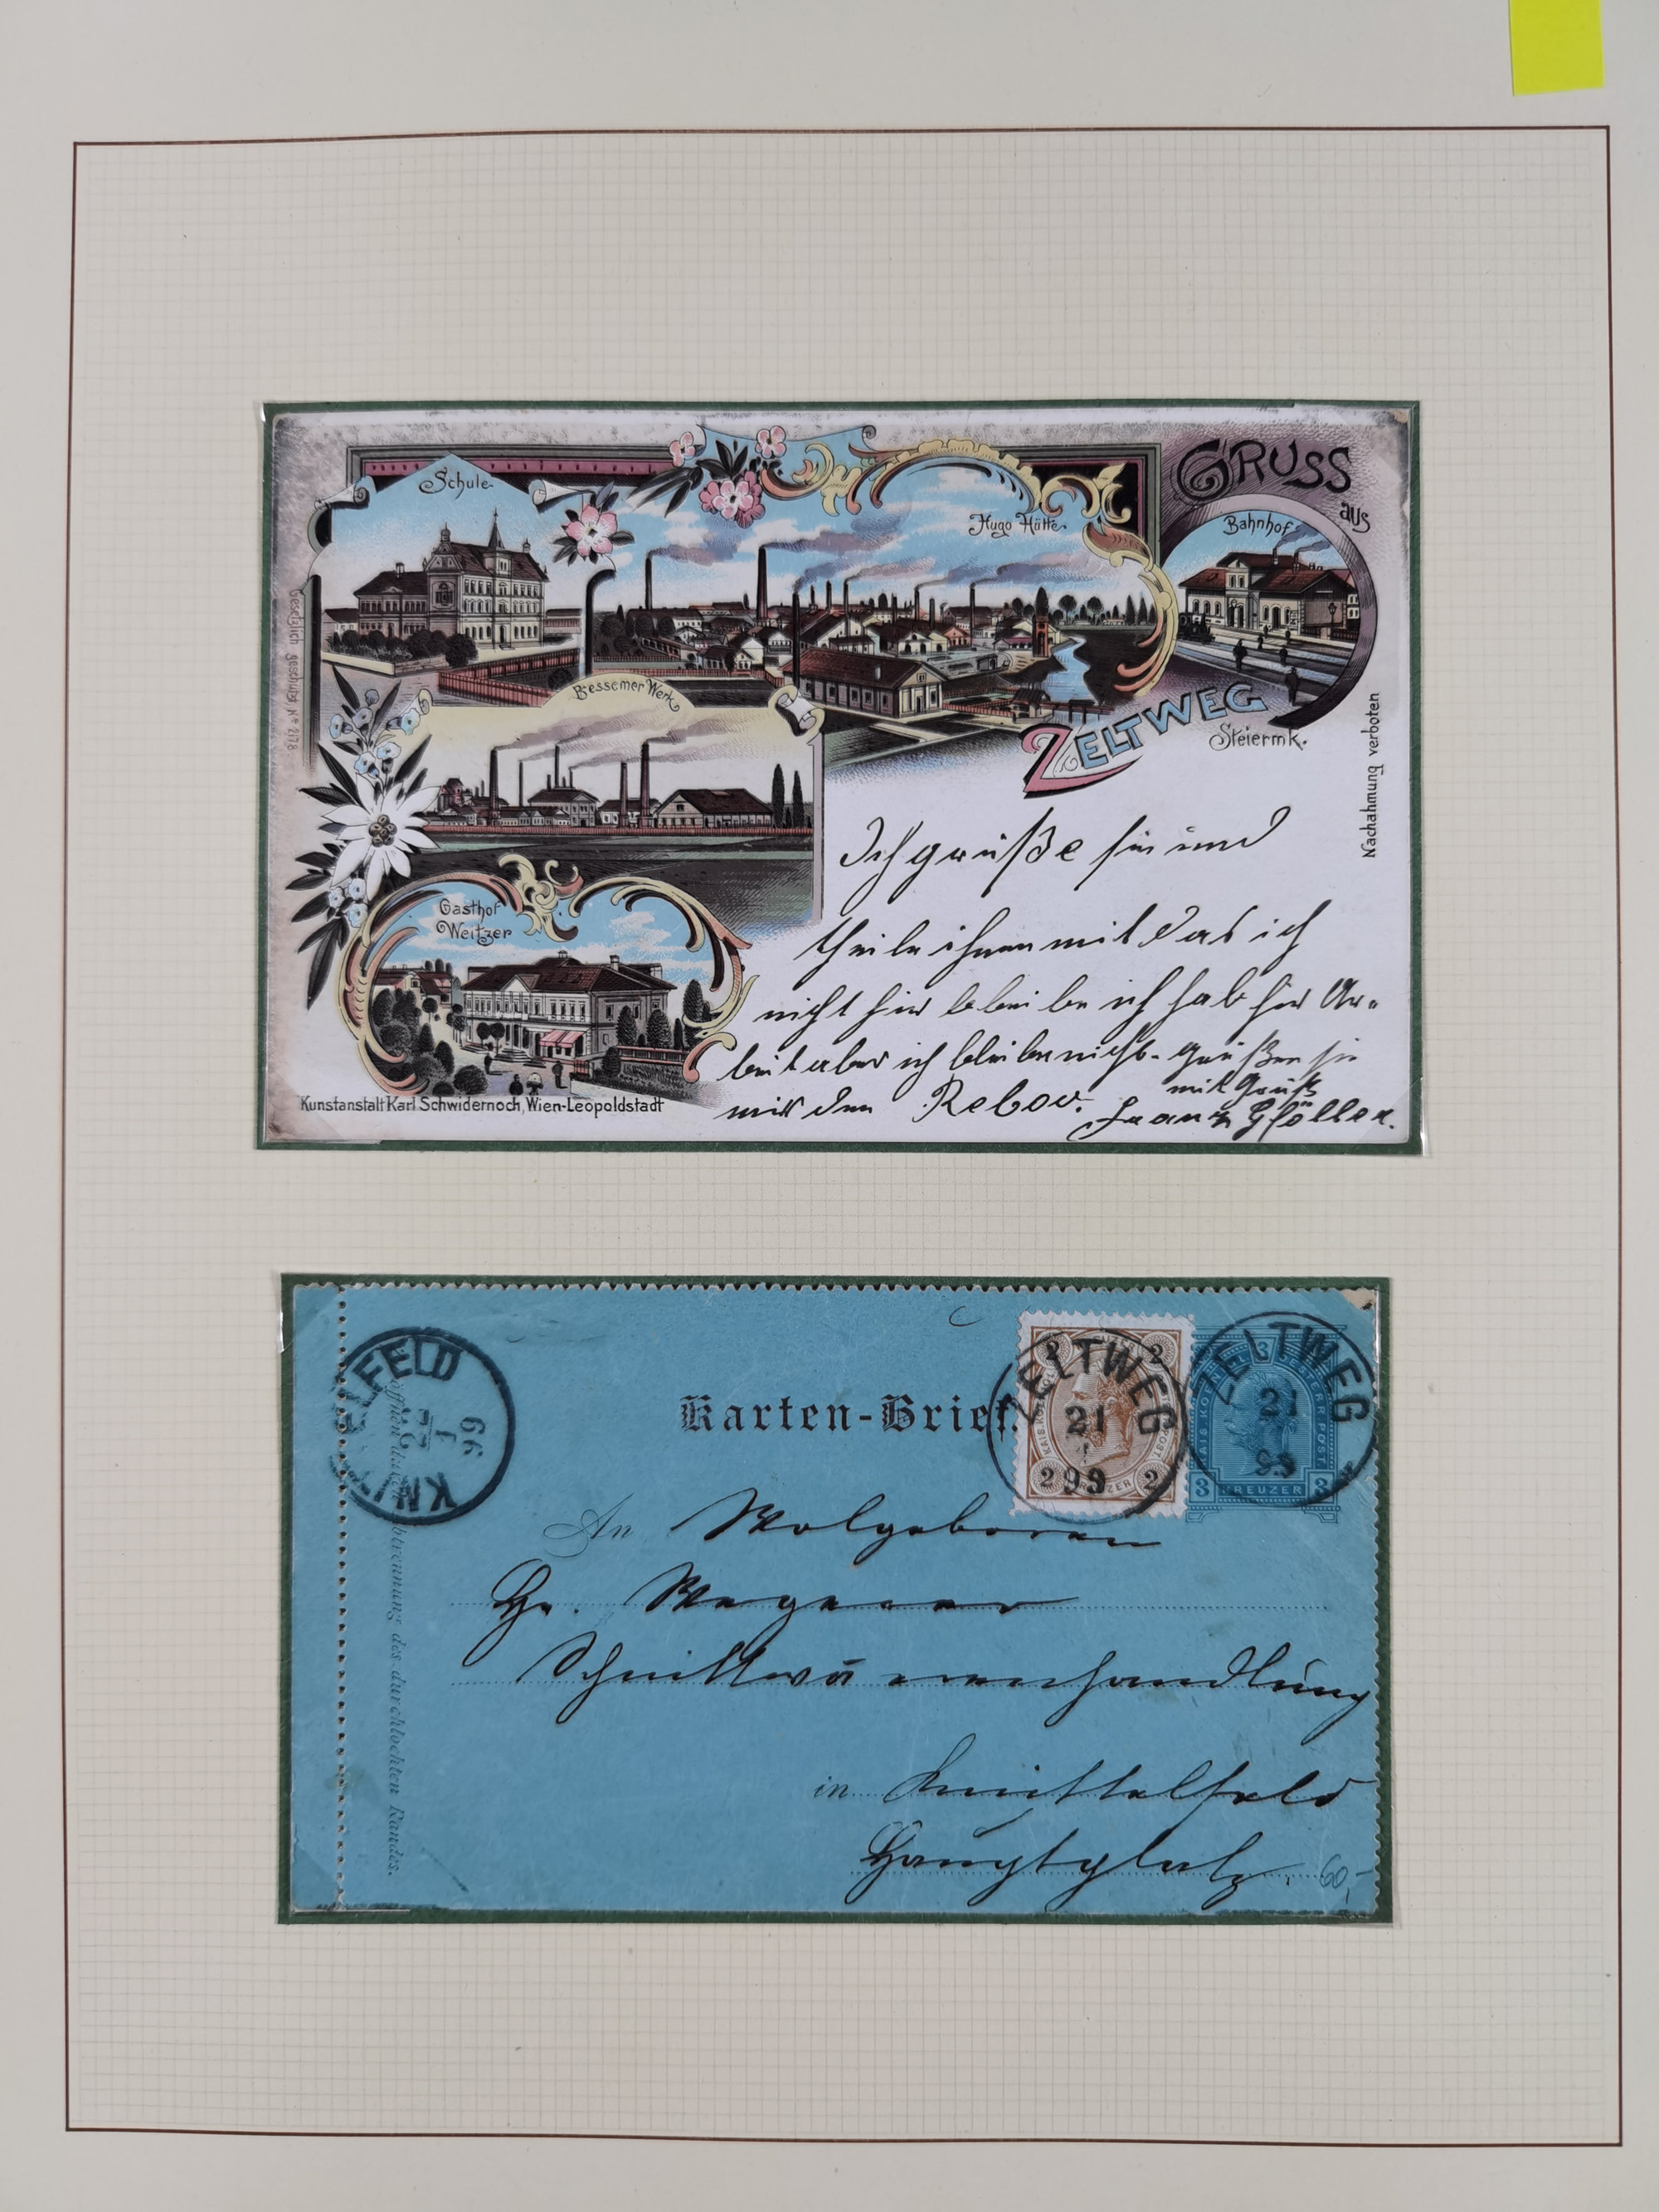 Schule
Hugo Hütte
GRUSS
aus
Bahnhof
ZELTWEG
Steiermk.
Bessemer Werk
Gasthof
Weitzer
Gesetzlich geschützt No 2178
Nachahmung verboten
Kunstanstalt Karl Schwidernoch, Wien-Leopoldstadt
Ich grüße sie und
theile ihnen mit das ich
nicht hier bleibe ich hab hier Ar-
beit aber ich bleibe nicht. grüßen sie
mir den
mit Gruß
Franz
Karten-Brief
ZELTWEG
21
99
ZELTWEG
21
99
2 2
2 KREUZER 2
3
3 KREUZER 3
KNITTELFELD
21
1
99
An Wolgeboren
Hr. Wagner
Schnittwarenhandlung
in Knittelfeld
Hauptplatz.
60,-
Abtrennung des durchlochten Randes.